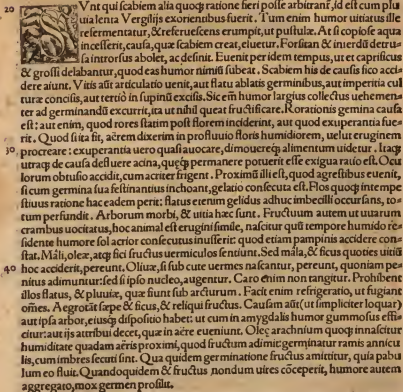 20 SVnt qui scabiem alia quoq; ratione fieri posse arbitrant̃, id est cum plu
uia lenta Vergilijs exorientibus fuerit. Tum enim humor uitiatus ille
resermentatur, &referuescens erumpit, ut pustulæ. At si copiose aqua
incesserit, causa, quæ scabiem creat, eluetur. Forsitan & interdũ detru-
sa introrsus abolet, ac definit. Euenit per idem tempus, ut et caprificus
& grossi delabantur, quod eas humor nimiũ subeat. Scabiem his de causis fico acci-
dere aiunt. Vitis aũt articulatio uenit, aut flatu ablatis germinibus, aut imperitia cul
turæ concisis, aut tertiò in supinũ excisis. Sic em̃ humor largius collectus uehemen-
ter ad germinandũ excurrit, ita ut nihil queat fructificare. Rorationis germina causa
est: aut enim, quod rores statim post florem inciderint, aut quod exuperantia fue-
rit. Quod si ita sit, aërem dixerim in profluuio floris humidiorem, uelut eruginem
30 procreare: exuperantia uero quasi auocare, dimouereq; alimentum uidetur. Itaq;
utraq; de causa defluere acina, queq; permanere potuerit esse exigua ratio est. Ocu
lorum obtusio accidit, cum acriter frigent. Proximũ illi est, quod agrestibus euenit,
si cum germina sua festinantius inchoant, gelatio consecuta est. Flos quoq; intempe
stiuus ratione hac eadem perit: flatus etenim gelidus adhuc imbecilli occursans, to-
tum perfundit. Arborum morbi, & uitia hæc sunt. Fructuum autem ut uuarum
crambus uocitatus, hoc animal est erugini simile, nascitur quũ tempore humido re-
sidente humore sol acrior consecutus inusserit: quod etiam pampinis accidere con-
stat. Mâli, oleæ, atq; fici fructus uermiculos sentiunt. Sed mâla, & ficus quoties uitiũ
40 hoc acciderit, pereunt. Oliuæ, si sub cute uermes nascantur, pereunt, quoniam pe-
nitus adimuntur: sed si ipso nucleo, augentur. Caro enim non tangitur. Prohibent
illos flatus, & pluuiæ, quæ fiunt sub arcturum. Facit enim refrigeratio, ut fugiant
om̃es. Aegrotãt sæpe & ficus, & reliqui fructus. Causam aũt (ut simpliciter loquar)
aut ipsa arbor, eiusq; dispositio habet: ut cum in amygdalis humor gummosus effi-
citur: aut ijs attribui decet, quæ in aëre eueniunt. Oleę arachnium quoq; innascitur
humiditate quadam aëris proximi, quod fructum adimit: germinatur ramis annicu
lis, cum imbres secuti sint. Qua quidem germinatione fructus amittitur, quia pabu
lum eo fluit. Quandoquidem & fructus nondum uires cõceperit, humore autem
aggregato, mox germen prosilit.